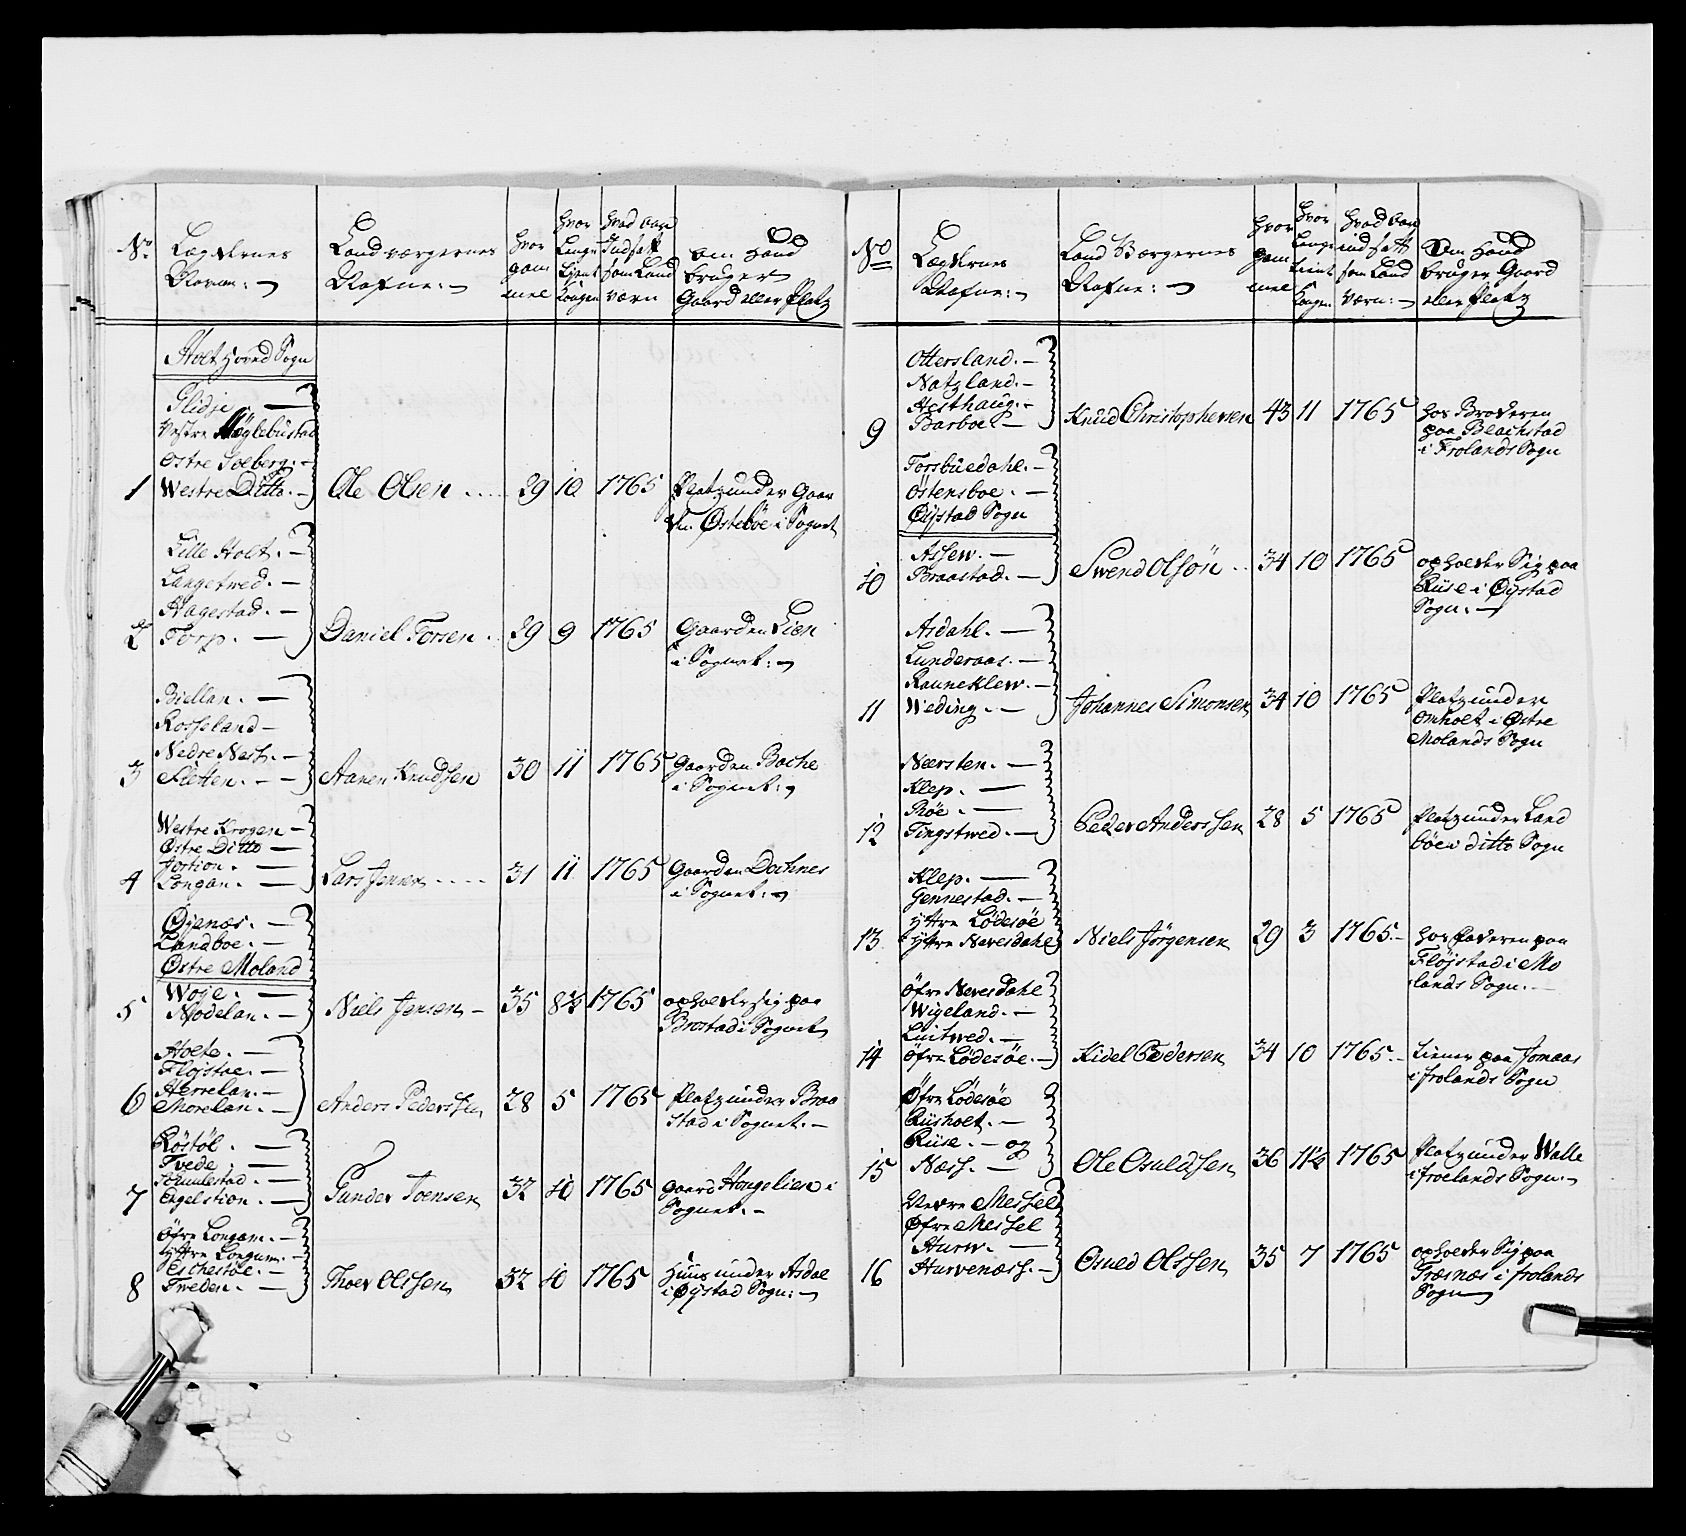 No.
Lægdernes
Nafne:
Landværgernes
Nafne:
hvor
gam
mel
hvor
Længe
tient
Kongen
hvad aar
Indsatt
som Land
værn
om hand
bruger
Gaard eller Platz
Holt Hoved Sogn
Glidje
Vestre Møglebustad
Ostre Soeberg
1 Westre Ditto Ole Olsen 29 10 1765 Platz under Gaar
den Østebøe i Sognet
Lille Holt
Langetwed
Hagestad
2 Torp Daniel Torsen 29 9 1765 Gaarden Lien
i Sognet
Biellan
Rosseland
Nedre Nesh
3 Sletten Aanen Knudsen 30 11 1765 Gaarden Bache
i Sognet
Westre Krogen
Østre Ditto
Jortion
4 Longan Lars Jensen 31 11 1765 Gaarden
i Sognet
Øjenæs
Landboe
Østre Moland
Woje
5 Nodelan Niels Jensen 35 8½ 1765 opholder sig paa
Brastad i Sognet
Holte
Flojstae
Herrelan
6 Morelan Anders Pedersen 28 5 1765 Platz under Braa
stad i Sognet
Røstøl
Tvede
7 Engelstion Gunder Toensen 32 10 1765 Gaard Hougelien i
Sognet
Øfre Longam
Yttre Longum
Eschestøe
8 Tweden Thoer Olssen 32 10 1765 Huus under Asdal
i Øijstad Sogn
No
Lægdernes
Nafne:
Land Værgernes
Nafne:
hvor
gam
mel
hvor
Lenge
tient
Kongen
hvad aar
indsatt
som Land
værn:
Om Hand
bruger Gaard
eller Platz
Ottersland
Natzland
Hesthaug
9 Barboe Knud Christophersen 43 11 1765 hos Broderen
paa Blachstad
i Frolands Sogn
Forsbuedahl
Østensboe
Øijstad Sogn
Assew
10 Braastad Swend Olsøn 34 10 1765 opholder Sig paa
Riise i Øijstad
Sogn
Asdahl
Lunderaas
Rauneklew
11 Weding Johannes Simonsen 34 10 1765 Platz under
Omholt i Østre
Molands Sogn
Næristen
Klep
Røe
12 Tingstwed Peder Anderssen 28 5 1765 Platz under Land
böe i ditto Sogn
Klep
Gennestad
Yttre Lødesøe
13 Yttre Nevesdahl Niels Jörgensen 29 3 1765 hos Faderen paa
Fløjstad i Mo
lands Sogn
Øfre Nevesdahl
Wigeland
Luitwed
14 Øfre Lødesøe Kidel Pedersen 34 10 1765 tiener paa Jomaas
i Frolands Sogn
Øfre Lødesøe
Riisholt
Riise og
15 Næss Ole Osuldsen 36 11½ 1765 Platz under Walle
i Froelands Sogn
Nedre Messel
Øfre Messel
Hurw
16 Hurvenæss Osued Olssen 35 7 1765 opholder Sig paa
Træsnæs i Frolands
Sogn